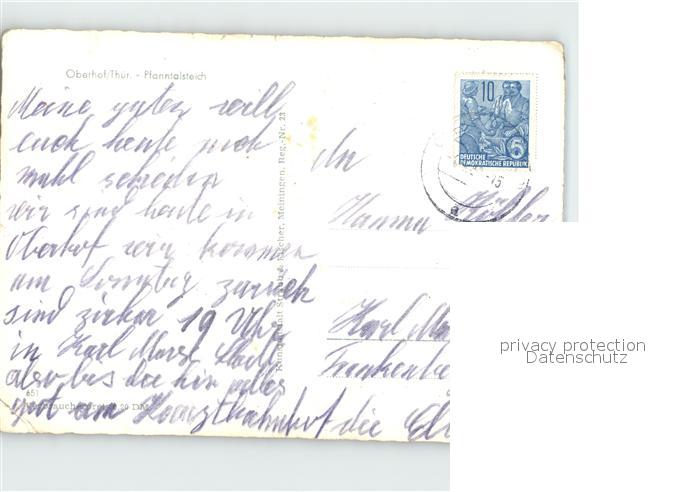 Oberhof/Thür. - Pfanntalsteich
Meine guten will
euch heute noch
mahl schreiben
wir sind heute in
Oberhof wir kommen
am Sonntag zurück
sind zirka 19 Uhr
in Karl Marx Stadt
also bis die hin alles
gut am Hauptbahnhof die
651
Verbraucherpreis 0,20 DM
Meiningen, Reg.-Nr. 23
10
DEUTSCHE
DEMOKRATISCHE REPUBLIK
5
a
An
Hanna
Karl Ma
Frankenbe
privacy protection
Datenschutz